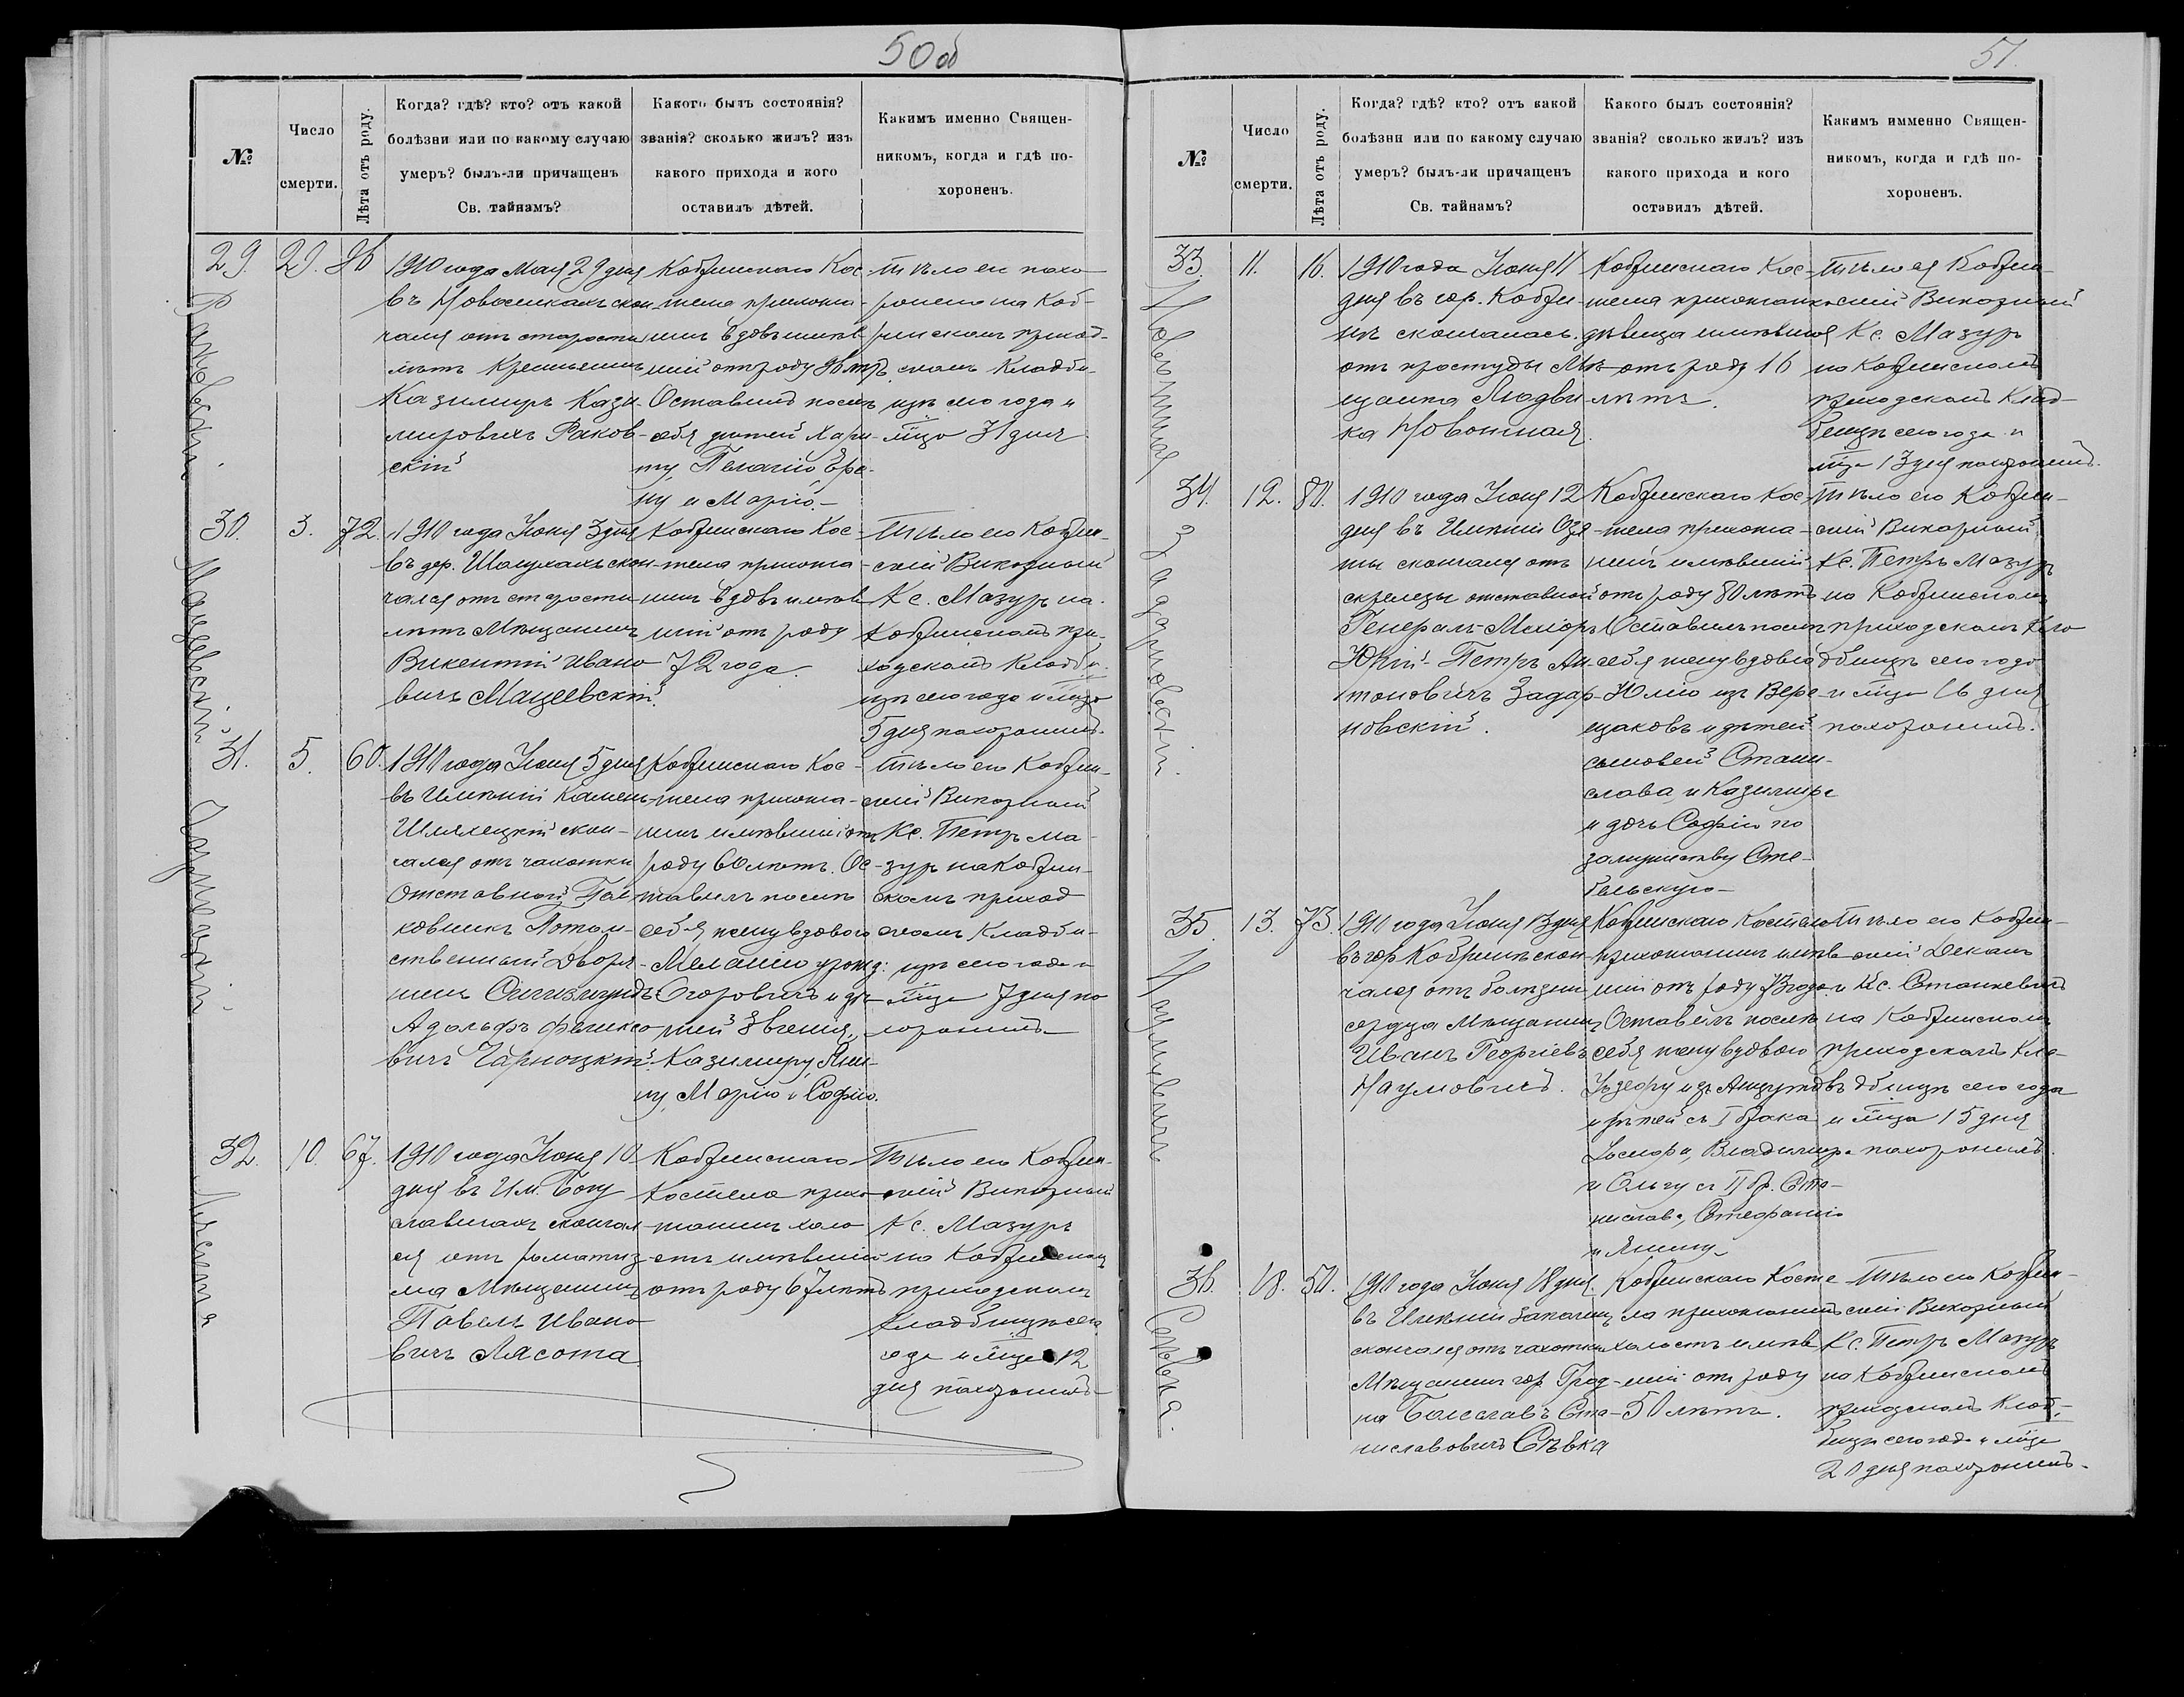 50об
№
Число смерти.
Лѣта отъ роду.
Когда? гдѣ? кто? отъ какой
болѣзни или по какому случаю
умеръ? былъ-ли причащенъ
Св. тайнамъ?
Какого былъ состоянія?
званія? сколько жилъ? изъ
какого прихода и кого
оставилъ дѣтей.
Какимъ именно Священ-
никомъ, когда и гдѣ по-
хороненъ.
Раковскій.
29. 29. 86
1910 года Мая 29 дня
въ Новоселкахъ скон-
чался отъ старости
лѣтъ Крестьянинъ
Казимиръ Кази-
мировичъ Раков-
скій
Кобринскаго Кос-
тела прихожа-
нинъ вдовъ имѣв-
шій отъ роду 86 лѣтъ
Оставивъ послѣ
себя дѣтей
Пелагію
и Марію.
Тѣло его похо-
ронено на Коб-
ринскомъ приход-
скомъ Кладби-
щѣ сего года и
м̃ца 31 дня
Мацеевскій
30. 3. 72.
1910 года Іюня 3 дня
въ дер. скон-
чался отъ старости
лѣтъ Мѣщанинъ
Викентій Ивано-
вичъ Мацеевскій.
Кобринскаго Кос-
тела прихожа-
нинъ вдовъ имѣв-
шій отъ роду
72 года.
Тѣло его Кобрин-
скій Викарный
Кс. Мазуръ на
Кобринскомъ при-
ходскомъ Кладби-
щѣ сего года и м̃ца
5 дня похоронилъ.
Чарноцкій.
31. 5. 60.
1910 года Іюня 5 дня
въ Имѣніи Камень-
Шляхецкій скон-
чался отъ чахотки
Отставной Пол-
ковникъ Потом-
ственный Дворя-
нинъ Сигизмундъ-
Адольфъ Феликсо-
вичъ Чарноцкій.
Кобринскаго Кос-
тела прихожа-
нинъ имѣвшій отъ
роду 60 лѣтъ. Ос-
тавилъ послѣ
себя жену вдовою
Меланію урожд:
Огоровичъ и дѣ-
тей Эвгенія,
Казимиру, Яни-
ну, Марію и Софію.
Тѣло его Кобрин-
скій Викарный
Кс. Петръ Ма-
зуръ на Кобрин-
скомъ приход-
скомъ Кладби-
щѣ сего года и
м̃ца 7 дня по-
хоронилъ
Лясота
32. 10. 67.
1910 года Іюня 10
дня въ Им. Богу-
славичахъ скончал-
ся отъ ревматиз-
ма Мѣщанинъ
Павелъ Ивано-
вичъ Лясота
Кобринскаго
Костела прихо-
жанинъ холо-
стъ имѣвшій
отъ роду 67 лѣтъ
Тѣло его Кобрин-
скій Викарный
Кс. Мазуръ
на Кобринскомъ
приходскомъ
Кладбищѣ сего
года и м̃ца 12
дня похоронилъ
51.
№
Число смерти.
Лѣта отъ роду.
Когда? гдѣ? кто? отъ какой
болѣзни или по какому случаю
умеръ? былъ-ли причащенъ
Св. тайнамъ?
Какого былъ состоянія?
званія? сколько жилъ? изъ
какого прихода и кого
оставилъ дѣтей.
Какимъ имменно Священ-
никомъ, когда и гдѣ по-
хороненъ.
33. 11. 16.
1910 года Іюня 11
дня въ гор. Кобри-
нѣ скончалась
отъ простуды Мѣ-
щанка Людви-
ка
Кобринскаго Кос-
тела прихожанка
дѣвица имѣвшая
отъ роду 16
лѣтъ.
Тѣло ея Кобрин-
скій Викарный
Кс. Мазуръ
на Кобринскомъ
приходскомъ Клад-
бищѣ сего года и
м̃ца 13 дня похоронилъ.
Задарновскій.
34. 12. 80.
1910 года Іюня 12
дня въ Имѣніи Озя-
ты скончался отъ
отставной
Генералъ-Маіоръ
Юрій-Петръ Ан-
тоновичъ Задар-
новскій.
Кобринскаго Кос-
тела прихожа-
нинъ имѣвшій
отъ роду 80 лѣтъ
Оставилъ послѣ
себя жену вдовою
Юлію изъ Вере-
щаковъ и дѣтей
сыновей Стани-
слава и Казимира
и дочь Софію по
замужеству Сте-
бельскую
Тѣло его Кобрин-
скій Викарный
Кс. Петръ Мазуръ
на Кобринскомъ
приходскомъ Кла-
дбищѣ сего года
и м̃ца 16 дня
похоронилъ.
Наумовичъ
35. 13. 73.
1910 года Іюня 13 дня
въ гор. Кобринѣ скон-
чался отъ болѣзни
сердца Мѣщанинъ
Иванъ Георгіевъ
Наумовичъ.
Кобринскаго Костела
прихожанинъ имѣв-
шій отъ роду 73 года
Оставилъ послѣ
себя жену вдовою
и дѣтей съ I брака
Іосифа, Владимира
и Ольгу съ II бр. Ста-
нислава, Стефанію
и Янину
Тѣло его Кобрин-
скій Деканъ
Кс. Станкевичъ
на Кобринскомъ
приходскомъ Кла-
дбищѣ сего года
и м̃ца 15 дня
похоронилъ
Сѣвка.
36. 18. 50.
1910 года Іюня 18 дня
въ Имѣніи
скончался отъ чахотки
Мѣщанинъ гор. Грод-
на Болеславъ Ста-
ниславовичъ Сѣвка
Кобринскаго Косте-
ла прихожанинъ
холостъ имѣв-
шій отъ роду
50 лѣтъ.
Тѣло его Кобрин-
скій Викарный
Кс. Петръ Мазуръ
на Кобринскомъ
приходскомъ Клад-
бищѣ сего года и м̃ца
20 дня похоронилъ.